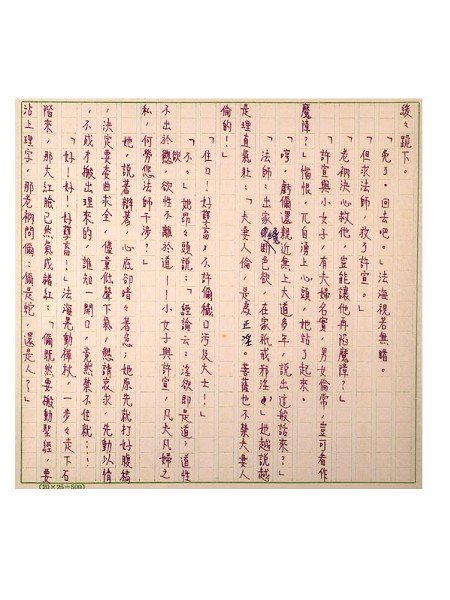 緩々跪下。
「免了。回去吧。」法海視若無睹。
「但求法師，放了許宣。」
「老衲決心救他，豈能讓他再陷魔障？」
「許宣與小女子，有夫婦名實，男女倫常，豈可看作
魔障？」惱恨，兀自湧上心頭，她站了起來。
「哼，虧倆還親近無上大道多年，說出這般話來？」
「法師：出家絕斷色欲，在家祇戒邪淫。」她越說越
是理直氣壯：「夫妻人倫，是為正淫。菩薩也不禁夫妻人
倫的！」
「住口！好孽畜，不許倆穢口污及大士！」
「不。」她昂々頭說：「經論云：淫欲即是道；道性
不出於慾，欲性不離於道——小女子與許宣，凡夫凡婦之
私，何勞您法師干涉？」
她，說着辯著，心底卻暗々著急：她原先就打好腹稿
，決定要委曲求全，儘量低聲下氣，懇請哀求，先動以情
，不成才搬出理來的，誰知一開口，竟然禁不住就……
「好！好！好孽畜！」法海晃動禪杖，一步々走下石
階來，那大紅臉已然氣成赭紅：「倆既然要搬動聖經，要
沾上理字，那老衲問倆，倆是蛇，還是人？」
(20×25=500)